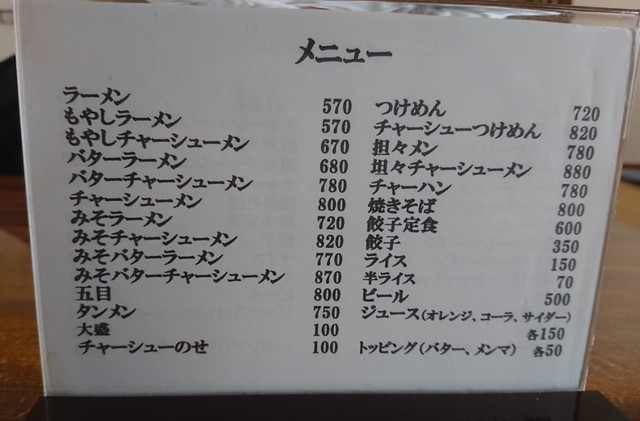 メニュー
ラーメン 570
もやしラーメン 570
もやしチャーシューメン 670
バターラーメン 680
バターチャーシューメン 780
チャーシューメン 800
みそラーメン 720
みそチャーシューメン 820
みそバターラーメン 770
みそバターチャーシューメン 870
五目 800
タンメン 750
大盛 100
チャーシューのせ 100
つけめん 720
チャーシューつけめん 820
担々メン 780
坦々チャーシューメン 880
チャーハン 780
焼きそば 800
餃子定食 600
餃子 350
ライス 150
半ライス 70
ビール 500
ジュース(オレンジ、コーラ、サイダー)
各150
トッピング(バター、メンマ) 各50